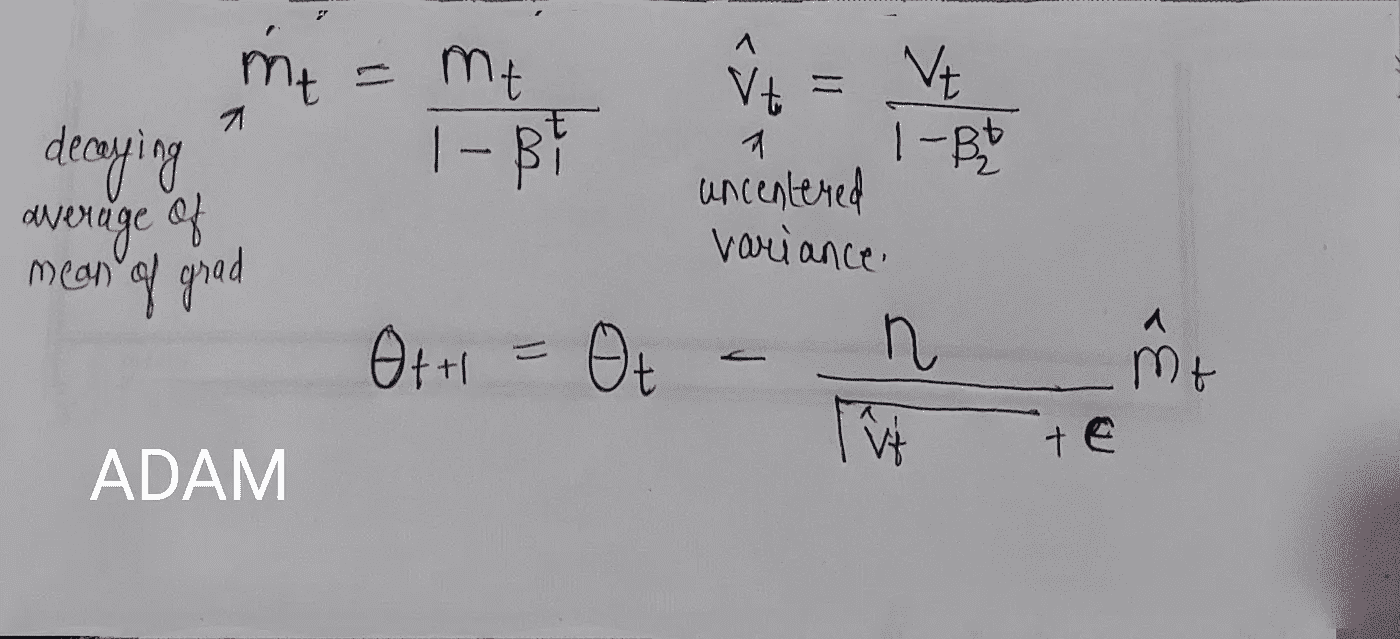 m̂t = mt / (1 - β1^t)    v̂t = Vt / (1 - β2^t)
decaying
average of
mean of grad
uncentered
variance.
θt+1 = θt - η / (√v̂t + ϵ) m̂t
ADAM